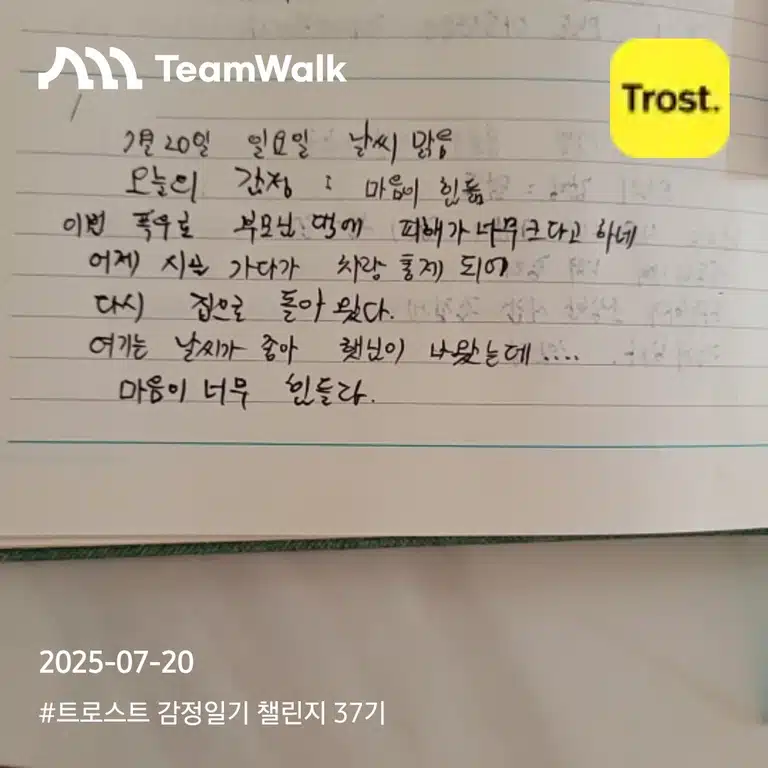 TeamWalk
Trost.
7월 20일 일요일 날씨 맑음
오늘의 감정 : 마음이 힌듦
이번 폭우로 부모님 댁에 피해가 너무 크다고 하네
어제 시골 가다가 차량 통제 되어
다시 집으로 돌아 왔다.
여기는 날씨가 좋아 햇님이 나왔는데....
마음이 너무 힌들다.
2025-07-20
#트로스트 감정일기 챌린지 37기